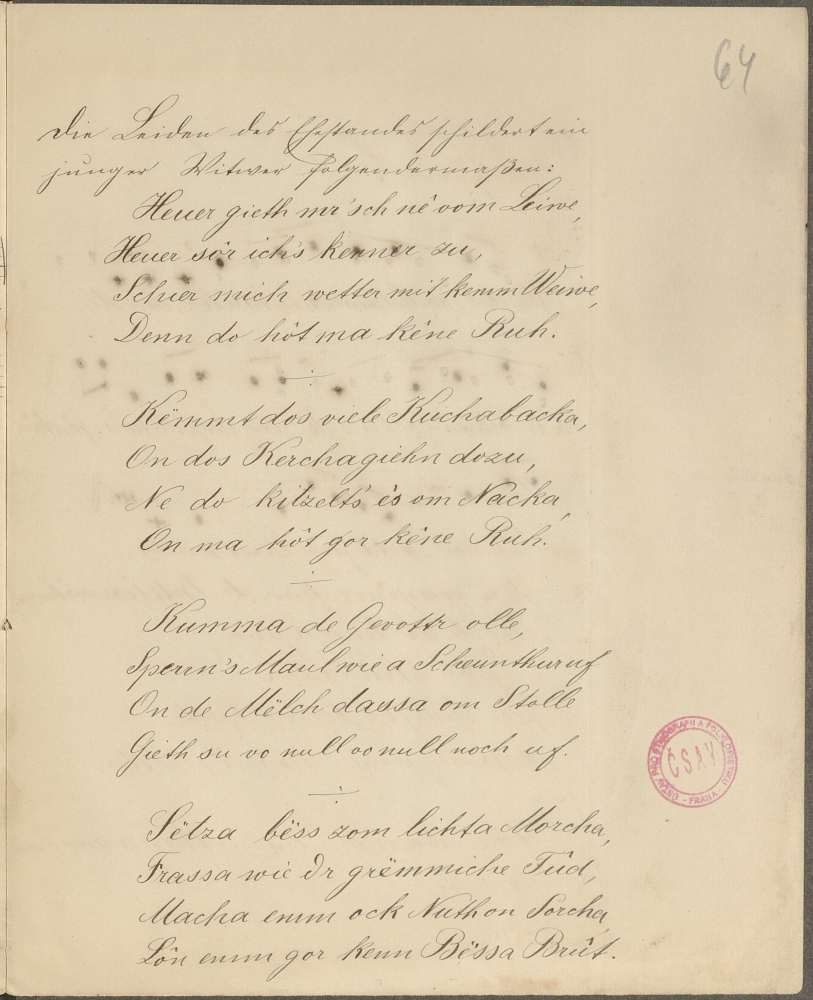 64
Die Leiden des Ehestandes schildert ein
junger Witwer folgendermaßen:
Heuer gieth mr'sch nê vom Leiwe,
Heuer sôr ich's kenner zu,
Schier mich wetter mit kemm Weiwe,
Denn do hôt ma kêne Ruh.
Këmmt dos viele Kuchabacka,
On dos Kerchagiehn dozu,
Ne do kitzelt's ês om Nacka,
On ma hôt gor kêne Ruh.
Kumma de Gevottr olle,
Sperrn's Maul wie a Scheunthur uf
On de Mëlch dassa om Stolle
Gieth su vo null oo null noch uf.
Sëtza bëss zom lichta Morcha,
Frassa wie dr grëmmiche Tûd,
Macha enm ock Nuth on Sorcha,
Lôn enm gor kenn Bëssa Brût.
ÚSTAV PRO ETNOGRAFII A FOLKLORISTIKU
ČSAV
- PRAHA -